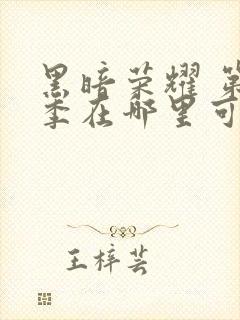 黑暗荣耀 第
季在哪里可
王梓芸